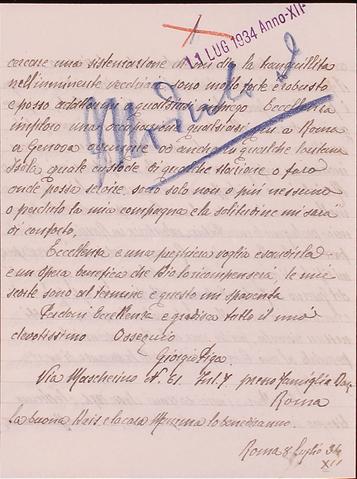 11 LUG 1934 Anno XII
cercare una sistemazione di mi dia la tranquillità
nell'imminente vecchiaia sono molto forte e robusto
e posso adattarmi a qualsiasi impiego Eccellenza
imploro una occupazione qualsiasi qui a Roma
a Genova ovunque od anche in qualche lontana
Isola quale custode di qualche stazione o faro
onde possa servire, sono solo non o più nessuno
o perduto la mia compagna e la solitudine mi sarà
di conforto.
Eccellenza e una preghiera voglia esaudirla
e un opera benefica che Dio la ricompenserà, le mie
scorte sono al termine e questo mi spaventa
Perdoni Eccellenza e gradisca tutto il mio
devotissimo Ossequio
Via Mascherino N. 51 Int. 7 presso famiglia
Roma
la buona e la cara la benediranno.
Roma 8 Luglio 34
XII